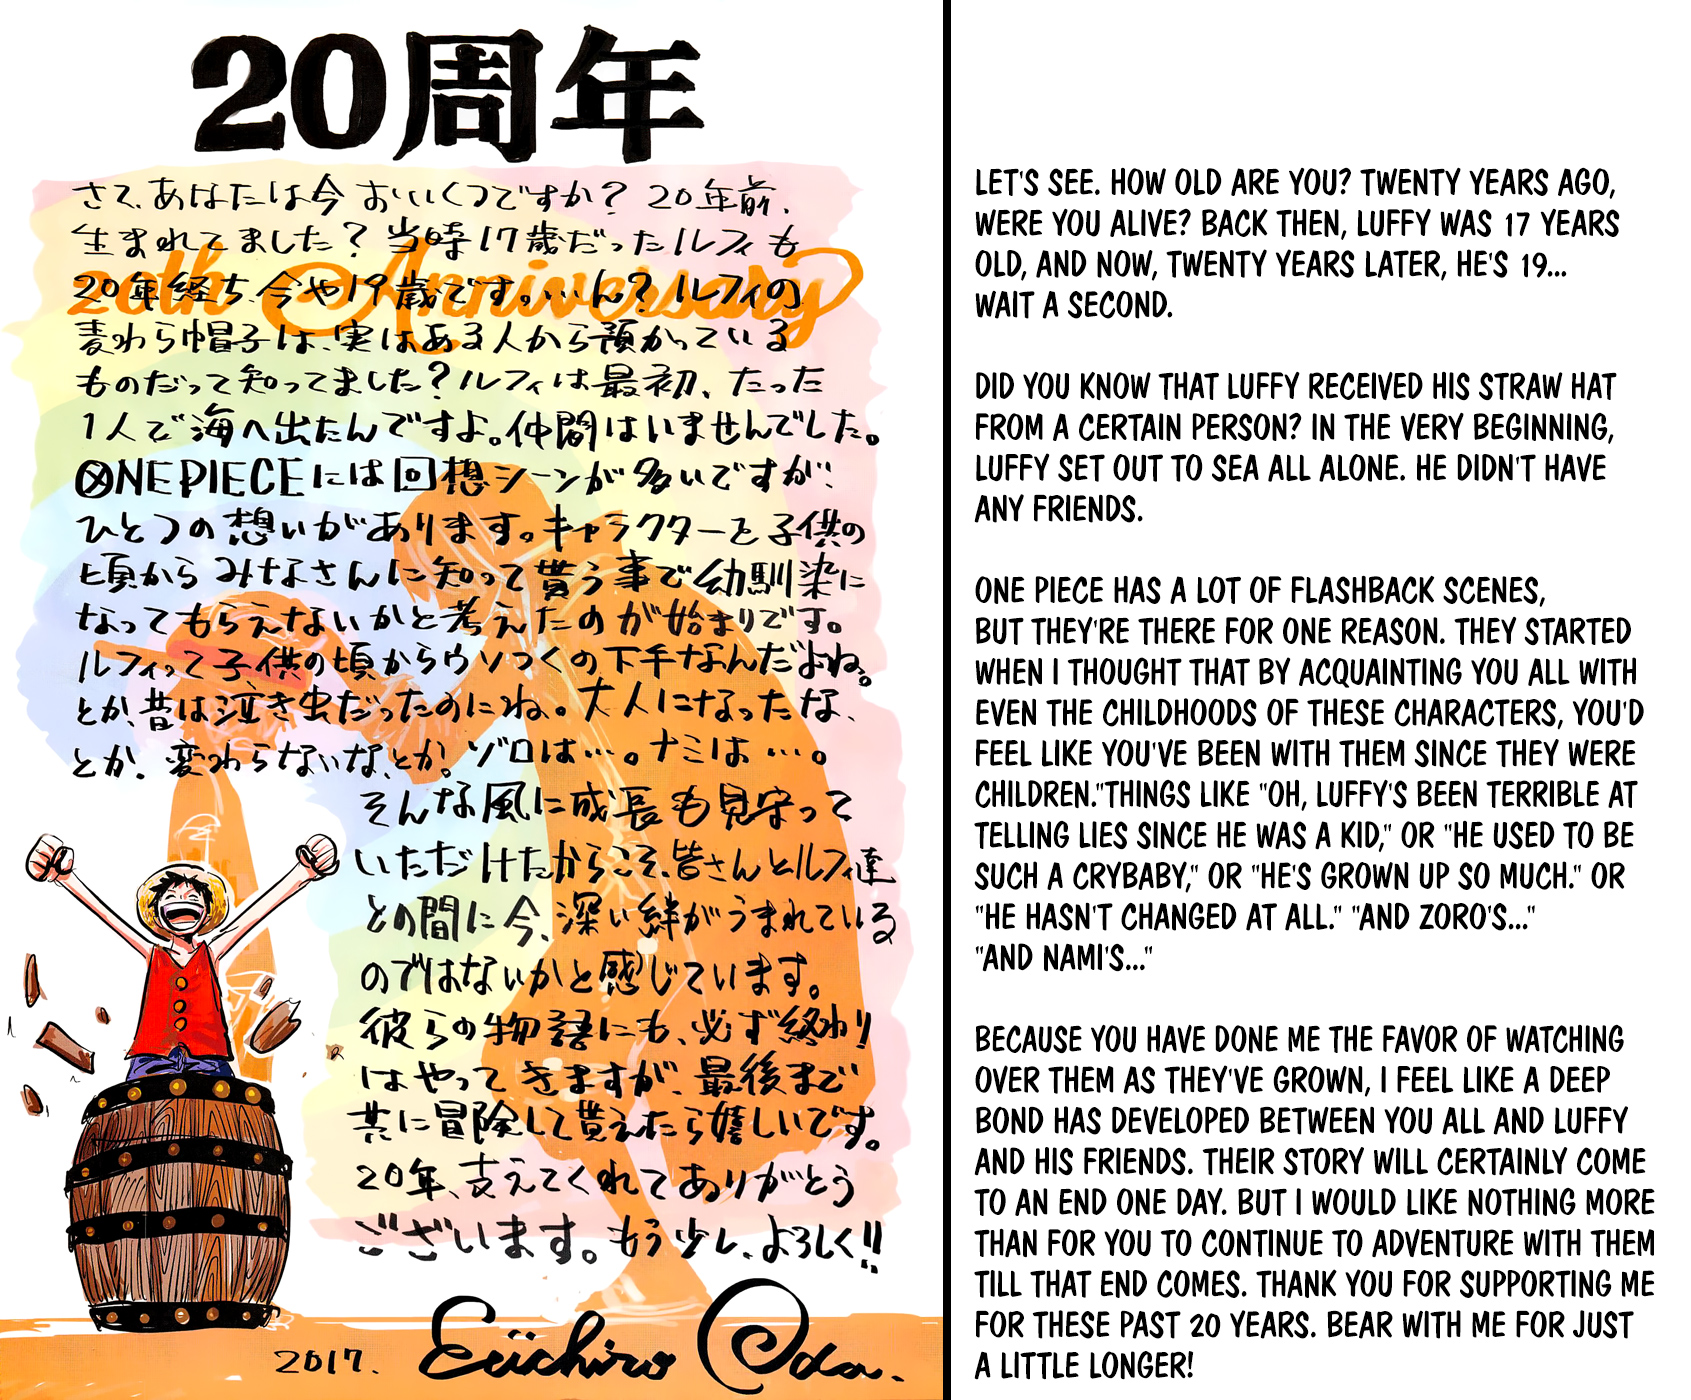 20周年
20th Anniversary
さて、あなたは今おいくつですか? 20年前、
生まれてました? 当時17歳だったルフィも
20年経ち、今や19歳です。…ん? ルフィの
麦わら帽子は、実はある人から預かっている
ものだって知ってました? ルフィは最初、たった
1人で海へ出たんですよ。仲間はいませんでした。
ONE PIECEには回想シーンが多いですが、
ひとつの想いがあります。キャラクターを子供の
頃からみなさんに知って貰う事で幼馴染に
なってもらえないかと考えたのが始まりです。
ルフィって子供の頃からウソつくの下手なんだよね。
とか、昔は泣き虫だったのにね。大人になったな、
とか、変わらないな、とか。ゾロは…。ナミは…。
そんな風に成長も見守って
いただけたからこそ、皆さんとルフィ達
との間に今、深い絆がうまれている
のではないかと感じています。
彼らの物語にも、必ず終わり
はやってきますが、最後まで
共に冒険して貰えたら嬉しいです。
20年、支えてくれてありがとう
ございます。もう少し、よろしく!!
2017. Eiichiro Oda.
LET'S SEE. HOW OLD ARE YOU? TWENTY YEARS AGO,
WERE YOU ALIVE? BACK THEN, LUFFY WAS 17 YEARS
OLD, AND NOW, TWENTY YEARS LATER, HE'S 19...
WAIT A SECOND.
DID YOU KNOW THAT LUFFY RECEIVED HIS STRAW HAT
FROM A CERTAIN PERSON? IN THE VERY BEGINNING,
LUFFY SET OUT TO SEA ALL ALONE. HE DIDN'T HAVE
ANY FRIENDS.
ONE PIECE HAS A LOT OF FLASHBACK SCENES,
BUT THEY'RE THERE FOR ONE REASON. THEY STARTED
WHEN I THOUGHT THAT BY ACQUAINTING YOU ALL WITH
EVEN THE CHILDHOODS OF THESE CHARACTERS, YOU'D
FEEL LIKE YOU'VE BEEN WITH THEM SINCE THEY WERE
CHILDREN."THINGS LIKE "OH, LUFFY'S BEEN TERRIBLE AT
TELLING LIES SINCE HE WAS A KID," OR "HE USED TO BE
SUCH A CRYBABY," OR "HE'S GROWN UP SO MUCH." OR
"HE HASN'T CHANGED AT ALL." "AND ZORO'S..."
"AND NAMI'S..."
BECAUSE YOU HAVE DONE ME THE FAVOR OF WATCHING
OVER THEM AS THEY'VE GROWN, I FEEL LIKE A DEEP
BOND HAS DEVELOPED BETWEEN YOU ALL AND LUFFY
AND HIS FRIENDS. THEIR STORY WILL CERTAINLY COME
TO AN END ONE DAY. BUT I WOULD LIKE NOTHING MORE
THAN FOR YOU TO CONTINUE TO ADVENTURE WITH THEM
TILL THAT END COMES. THANK YOU FOR SUPPORTING ME
FOR THESE PAST 20 YEARS. BEAR WITH ME FOR JUST
A LITTLE LONGER!